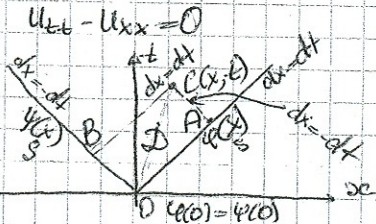 Utt - Uxx = 0
t
dx = -dt
dx = dt
C(x, t)
dx = dt
ψ(x)
S
B
D
A
φ(x)
S
dx = -dt
x
O
φ(0) = ψ(0)